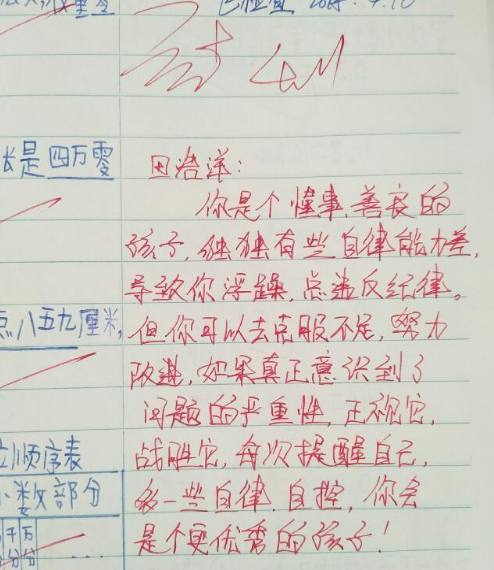 已检查 2018.4.10
长是四万零
田浩洋：
你是个懂事、善良的
孩子，独独有些自律能力差，
导致你浮躁，总违反纪律。
点八五九厘米，
但你可以去克服不足，努力
改进，如果真正意识到了
问题的严重性，正视它，
位顺序表
战胜它，每次提醒自己，
小数部分
多一些自律、自控，你会
千万
分分
...
是个更优秀的孩子！